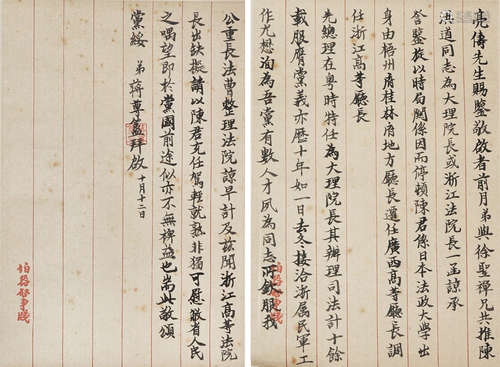 亮儔先生賜鑒敬啟者前月弟與徐聖禪兄共推陳
洪道同志為大理院長或浙江法院長一函諒承
詧鑒旋以時局關係因而停頓陳君係日本法政大學出
身由梧州府桂林府地方廳長遷任廣西高等廳長調
任浙江高等廳長
先總理在粵時特任為大理院長其辦理司法計十餘
載服膺黨義亦歷十年如一日去冬接洽浙屬民軍工
作尤懋洵為吾黨有數人才夙為同志所欽腿我
公重長法曹整理法院諒早計及茲聞浙江高等法院
長出缺擬請以陳君充任駕輕就熟非獨可慰敝省人民
之喁望即於黨國前途似亦不無裨益也耑此敬頌
黨綏 弟蔣尊簋拜啟 十月十二日
怕器啟事牋
怕器啟事牋